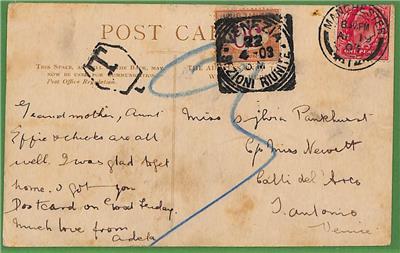 POST CARD
THIS SPACE, AS WELL AS THE BACK, MAY
NOW BE USED FOR COMMUNICATION
Post Office Regulation.
THE AD
VENEZIA
22
4-03
SEZIONI RIUNITE
MANCHESTER
T
Grandmother, Aunt
Effie & chicks are all
well. I was glad to get
home. I got you
Postcard on Good Friday.
Much love from
Adela
Miss Sylvia Pankhurst
C/o Miss Newitt
Calli del Arco
S. Antonio
Venice